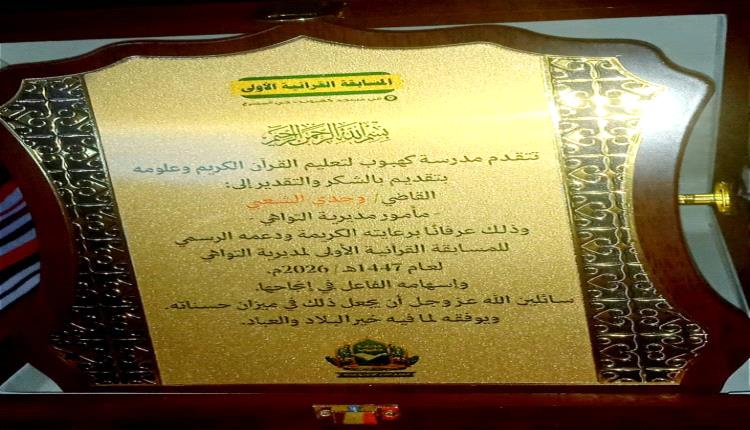 المسابقة القرآنية الأولى
في مسجد كهبوب - حي
بسم الله الرحمن الرحيم
تتقدم مدرسة كهبوب لتعليم القرآن الكريم وعلومه
بتقديم بالشكر والتقدير إلى:
القاضي/ وجدي الشعبي
- مأمور مديرية التواهي -
وذلك عرفانًا برعايته الكريمة ودعمه الرسمي
للمسابقة القرآنية الأولى لمديرية التواهي
لعام 1447هـ / 2026م.
وإسهامه الفاعل في إنجاحها.
سائلين الله عز وجل أن يجعل ذلك في ميزان حسناته.
ويوفقه لما فيه خير البلاد والعباد.